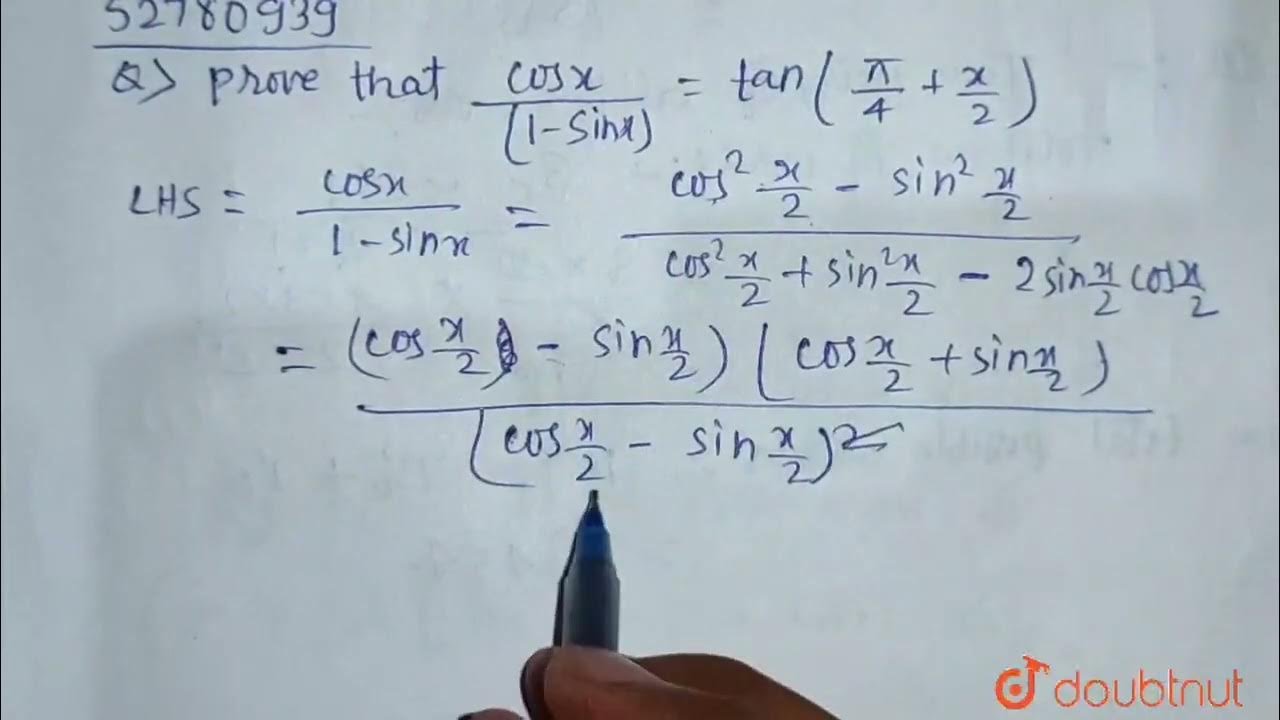 52780939
Q> prove that cosx/(1-sinx) = tan(π/4 + x/2)
LHS = cosx/1-sinx = cos² x/2 - sin² x/2 / cos² x/2 + sin² x/2 - 2 sin x/2 cos x/2
= (cos x/2 - sin x/2) (cos x/2 + sin x/2) / (cos x/2 - sin x/2)²
doubtnut